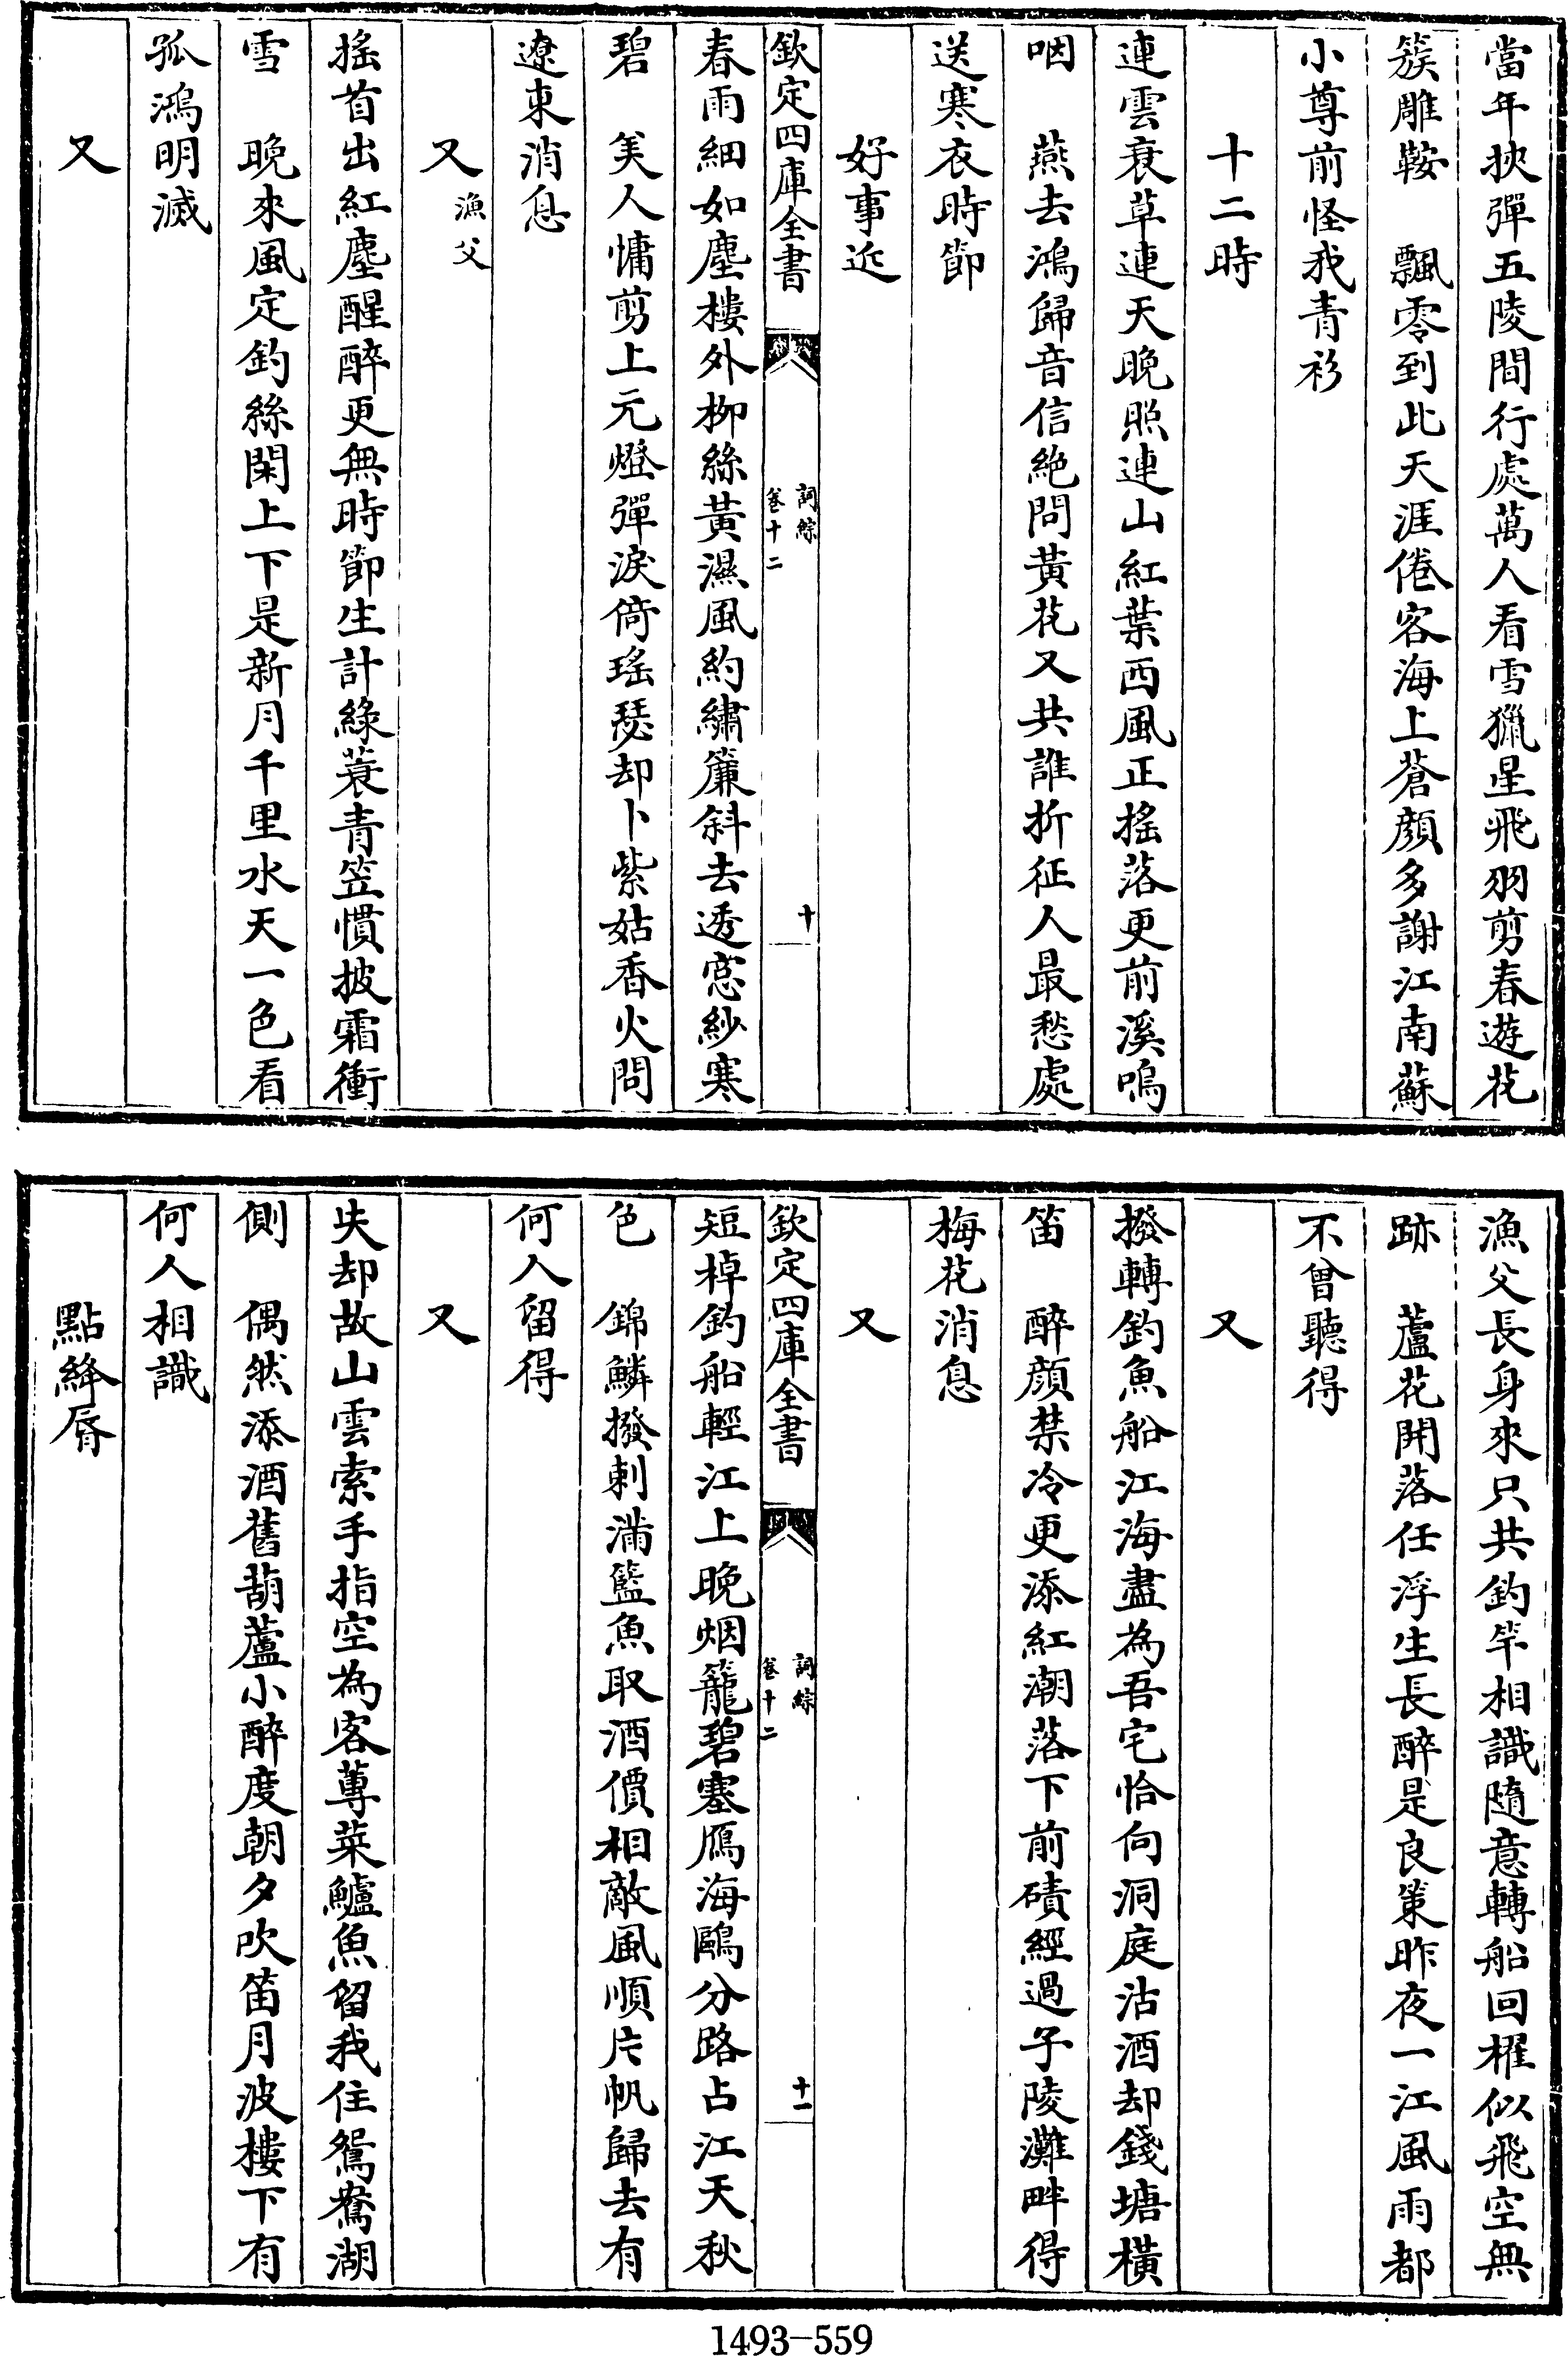 當年挾彈五陵間行處萬人看雪獵星飛羽剪春遊花
簇雕鞍　飄零到此天涯倦客海上蒼顔多謝江南蘇
小尊前怪我青衫
十二時
連雲衰草連天晚照連山紅葉西風正搖落更前溪嗚
咽　燕去鴻歸音信絶問黃花又共誰折征人最愁處
送寒衣時節
好事近
欽定四庫全書
詞綜
卷十二
十
春雨細如塵樓外柳絲黃濕風約繡簾斜去透窓紗寒
碧　美人慵剪上元燈彈淚倚瑤瑟却卜紫姑香火問
遼東消息
又漁父
搖首出紅塵醒醉更無時節生計綠蓑青笠慣披霜衝
雪　晚來風定釣絲閑上下是新月千里水天一色看
孤鴻明滅
又
漁父長身來只共釣竿相識隨意轉船回櫂似飛空無
跡　蘆花開落任浮生長醉是良策昨夜一江風雨都
不曾聽得
又
撥轉釣魚船江海盡為吾宅恰向洞庭沽酒却錢塘橫
笛　醉顔禁冷更添紅潮落下前磧經過子陵灘畔得
梅花消息
又
欽定四庫全書
詞綜
卷十二
十一
短棹釣船輕江上晚烟籠碧塞鴈海鷗分路占江天秋
色　錦鱗撥刺滿籃魚取酒價相敵風順片帆歸去有
何人留得
又
失却故山雲索手指空為客蓴菜鱸魚留我住鴛鴦湖
側　偶然添酒舊葫蘆小醉度朝夕吹笛月波樓下有
何人相識
點絳脣
1493-559